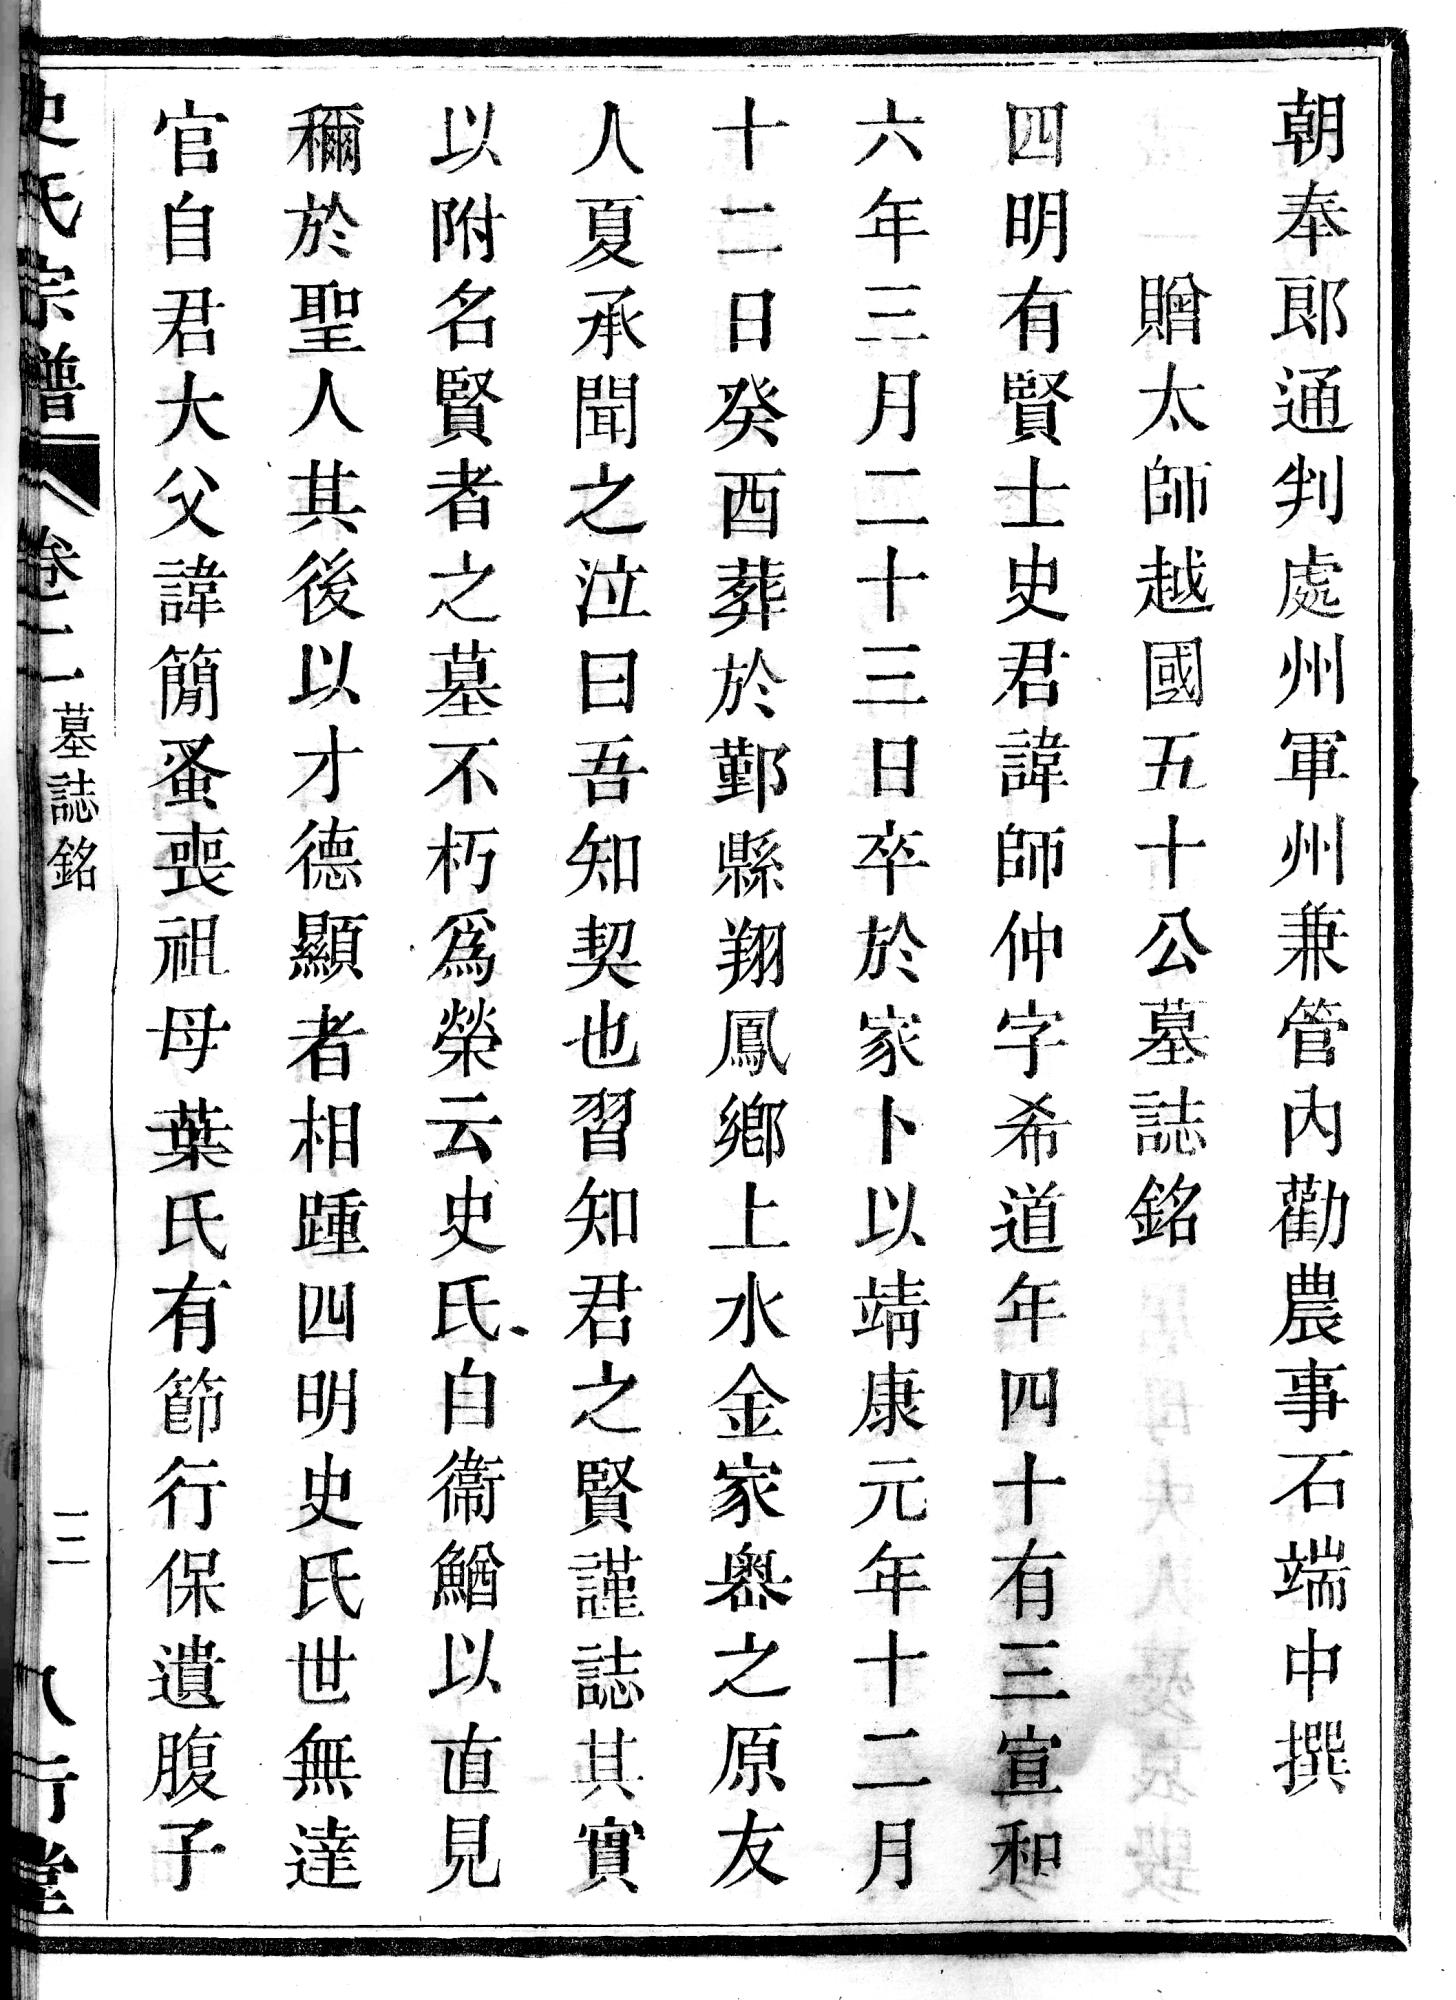 朝奉郎通判處州軍州兼管內勸農事石端中撰
贈太師越國五十公墓誌銘
四明有賢士史君諱師仲字希道年四十有三宣和
六年三月二十三日卒於家卜以靖康元年十二月
十二日癸酉葬於鄞縣翔鳳鄉上水金家嶴之原友
人夏承聞之泣曰吾知契也習知君之賢謹誌其實
以附名賢者之墓不朽爲榮云史氏自衞鰌以直見
稱於聖人其後以才德顯者相踵四明史氏世無達
官自君大父諱簡蚤喪祖母葉氏有節行保遺腹子
史氏宗譜 卷二 墓誌銘 三 八行堂